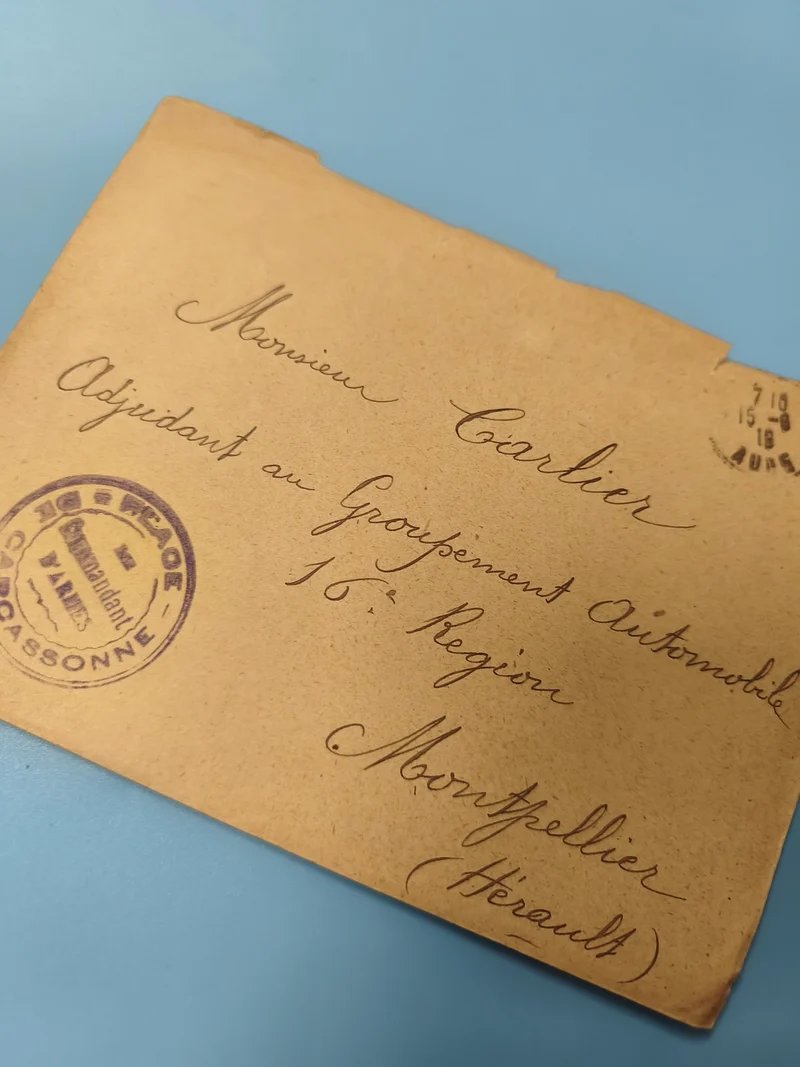 Monsieur Carlier
Adjudant au Groupement Automobile
16e Région
Montpellier
(Hérault)
7 10
15 - 8
18
AUDE
PLACE DE CARCASSONNE
LE
Commandant
D'ARMES